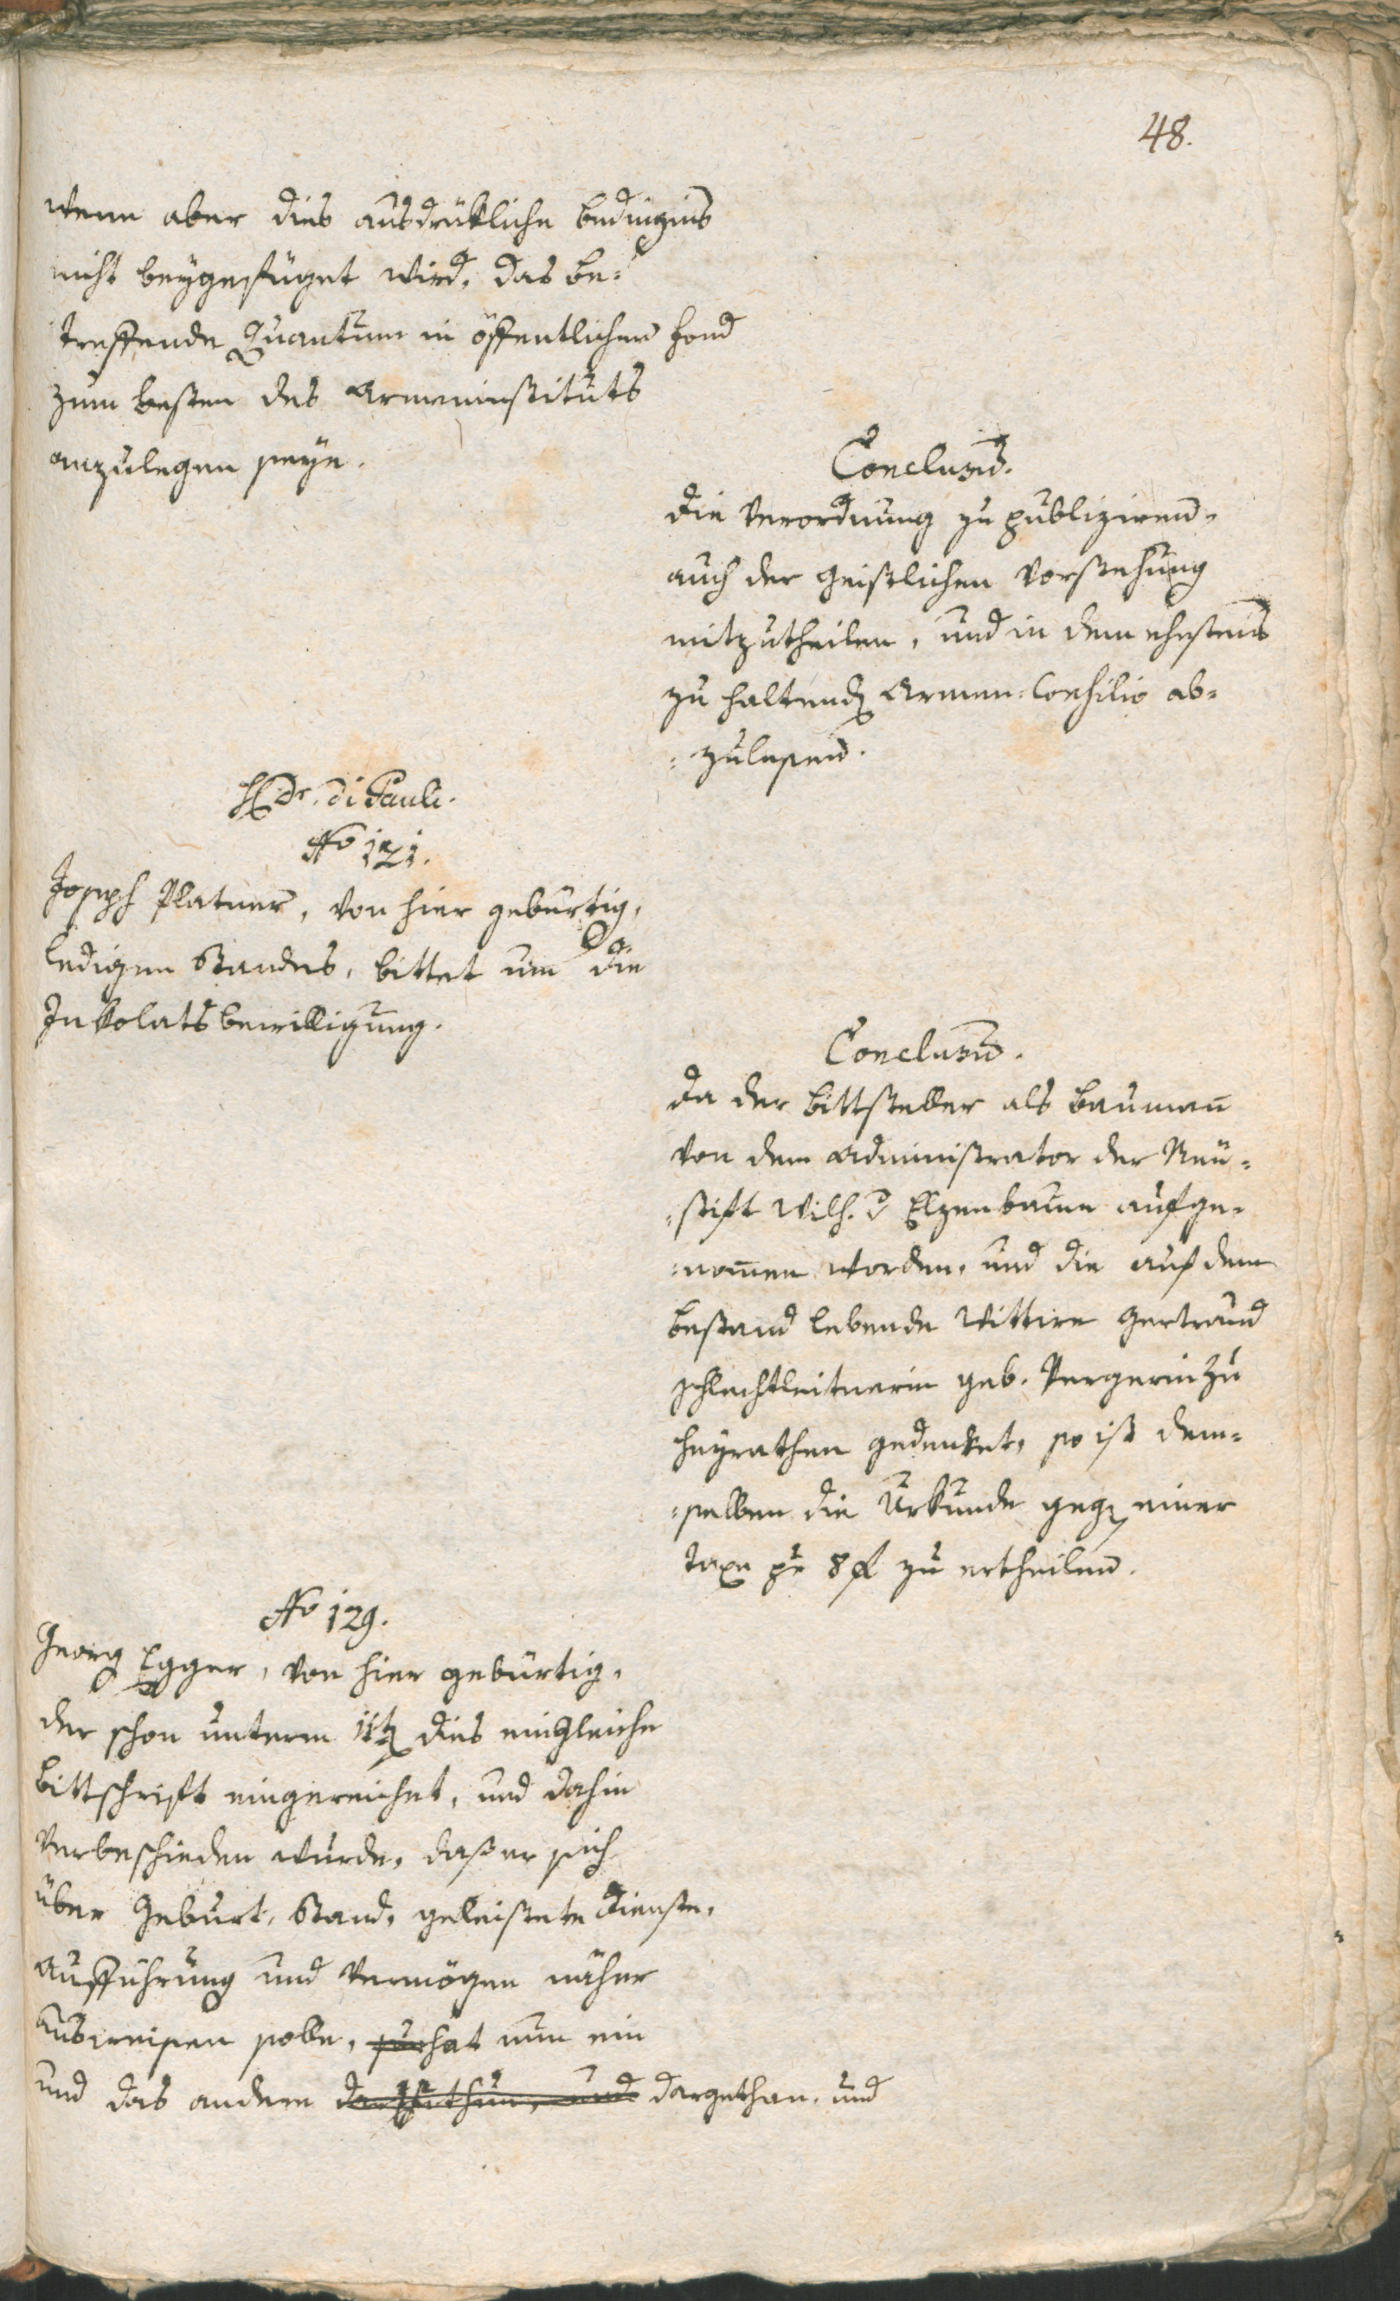 48.
wenn aber dies ausdrükliche bedingnis
nicht beygefüget wird, das be¬
treffende Quantum in öffentlichen Fond
zum besten des Armeninstituts
anzulegen seye.
Conclusum.
Die Verordnung zu publiziren,
auch der geistlichen Vorstehung
mitzutheilen, und in dem ehestens
zu haltenden Armen-Consilio ab¬
zulesen.
H. Dr. di Pauli.
No 121.
Joseph Platner, von hier gebürtig,
ledigen Standes, bittet um die
Inkolatsbewilligung.
Conclusum.
Da der Bittsteller als Baumann
von dem Administrator der Neu¬
stift Wilh. v Elzenbaum aufge¬
nom̅en worden, und die auf dem
bestand lebende Wittwe Gertraud
Schlechtleitnerin geb. Pergerin zu
heyrathen gedenket, so ist dem¬
selben die Urkunde gegen einer
Taxe pr 8 f zu ertheilen.
No 129.
Georg Egger, von hier gebürtig,
der schon unterm 11ten dies ein gleiche
Bittschrift eingereichet, und dahin
verbeschieden wurde, daß er sich
über Geburt, Stand, geleistete Dienste,
Aufführung und Vermögen näher
ausweisen solle, hat nun ein
und das andere dargethan, und